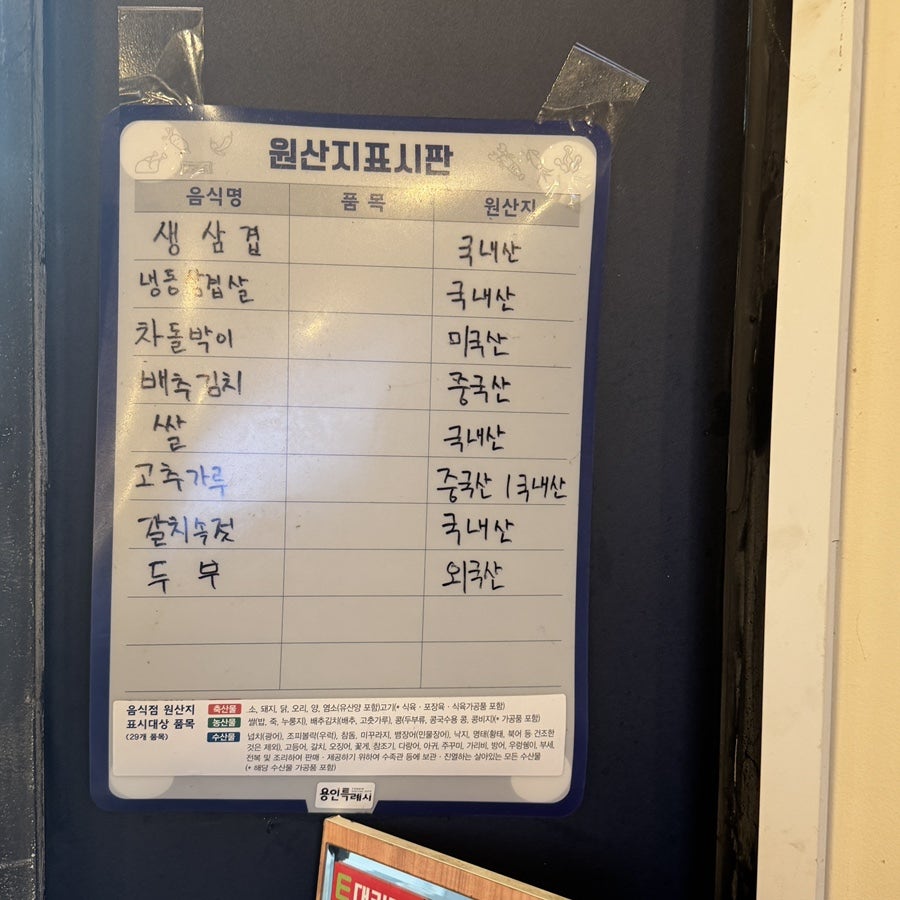 원산지표시판
음식명 품목 원산지
생삼겹 국내산
냉동삼겹살 국내산
차돌박이 미국산
배추김치 중국산
쌀 국내산
고추가루 중국산 / 국내산
갈치속젓 국내산
두부 외국산
음식점 원산지 표시대상 품목 (29개 품목)
축산물 소, 돼지, 닭, 오리, 양, 염소(유산양 포함)고기(+ 식육 · 포장육 · 식육가공품 포함)
농산물 쌀(밥, 죽, 누룽지), 배추김치(배추, 고춧가루), 콩(두부류, 콩국수용 콩, 콩비지)(+ 가공품 포함)
수산물 넙치(광어), 조피볼락(우럭), 참돔, 미꾸라지, 뱀장어(민물장어), 낙지, 명태(황태, 북어 등 건조한
것은 제외), 고등어, 갈치, 오징어, 꽃게, 참조기, 다랑어, 아귀, 주꾸미, 가리비, 방어, 우렁쉥이, 부세,
전복 및 조리하여 판매 · 제공하기 위하여 수족관 등에 보관 · 진열하는 살아있는 모든 수산물
(+ 해당 수산물 가공품 포함)
용인특례시